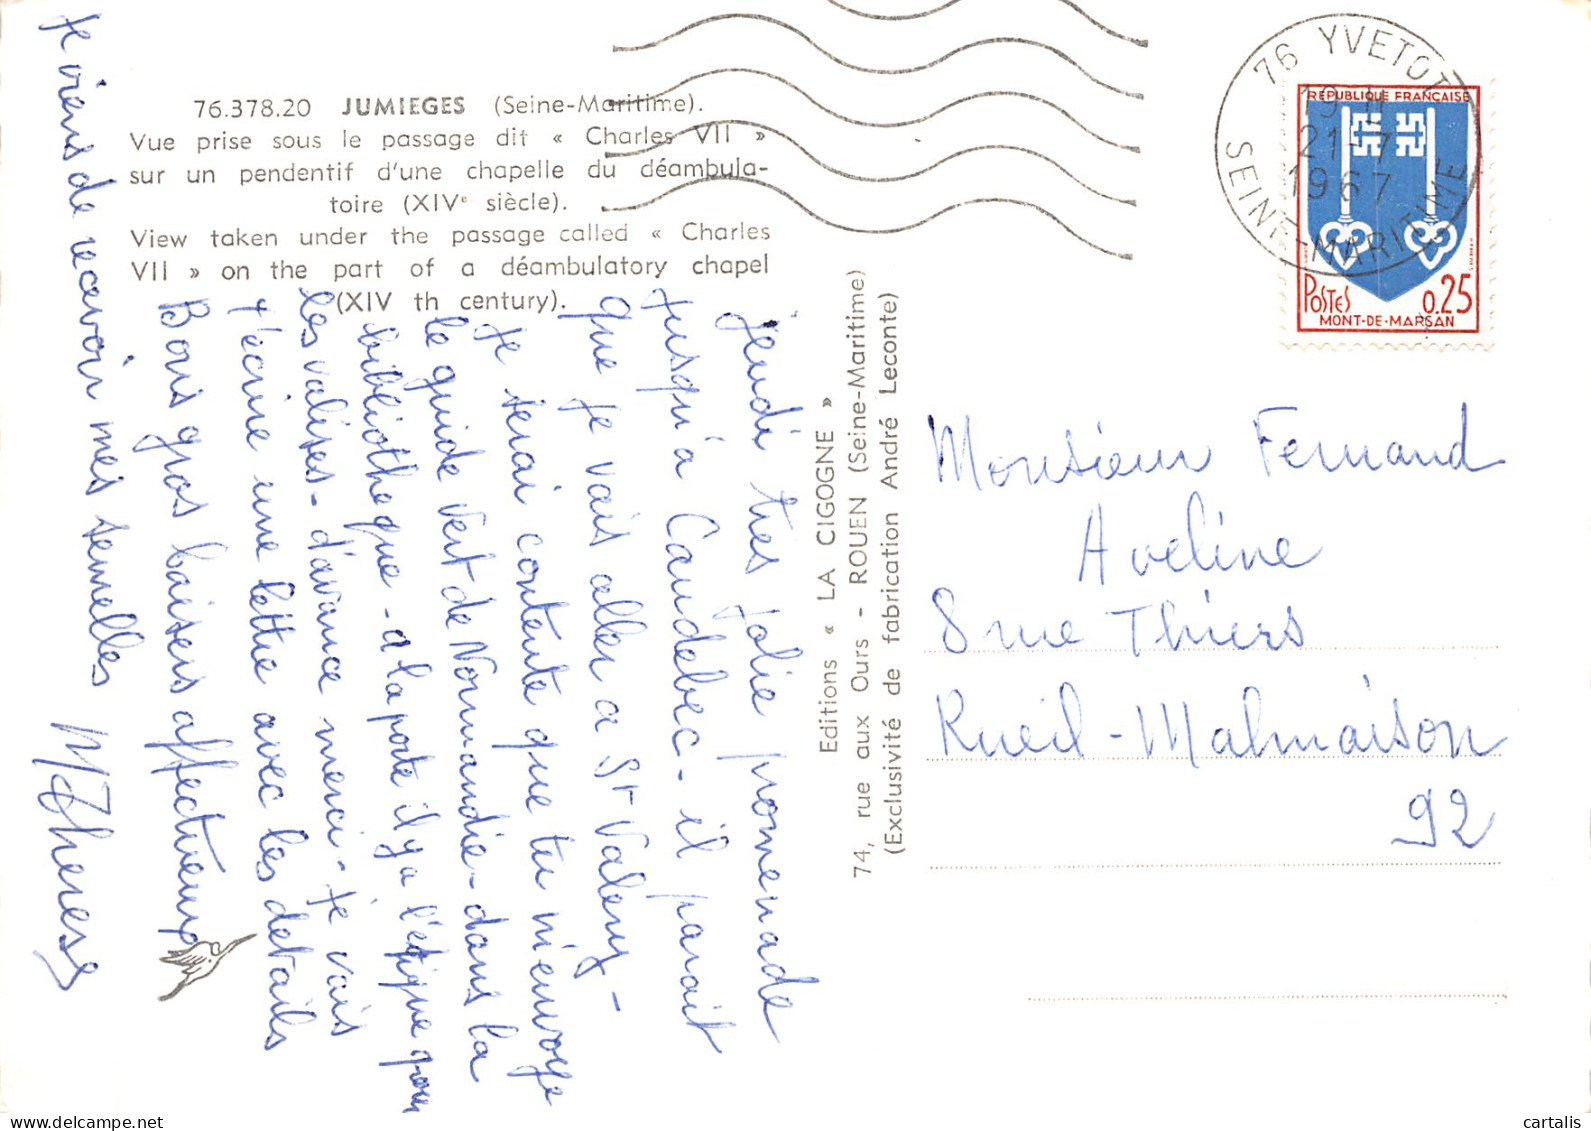 76.378.20 JUMIEGES (Seine-Maritime).
Vue prise sous le passage dit « Charles VII »
sur un pendentif d'une chapelle du déambula-
toire (XIVe siècle).
View taken under the passage called « Charles
VII » on the part of a déambulatory chapel
(XIV th century).
jeudi tres jolie promenade
jusqu'a Caudebec - il parait
que je vais aller a St Valery -
je serai contente que tu m'envoye
le guide vert de Normandie - dans la
bibliotheque - a la porte il y a l'etique pour
les valises - d'avance merci - je vais
t'écrire une lettre avec les details
Bons gros baisers affectueux
je viens de recevoir mes semelles
MTherese
Editions « LA CIGOGNE »
74, rue aux Ours - ROUEN (Seine-Maritime)
(Exclusivité de fabrication André Leconte)
76 YVETOT
19 H
21-7
1967
SEINE-MARITIME
REPUBLIQUE FRANÇAISE
POSTES 0.25
MONT-DE-MARSAN
Monsieur Fernand
Aveline
8 rue Thiers
Rueil-Malmaison
92
delcampe.net
cartalis